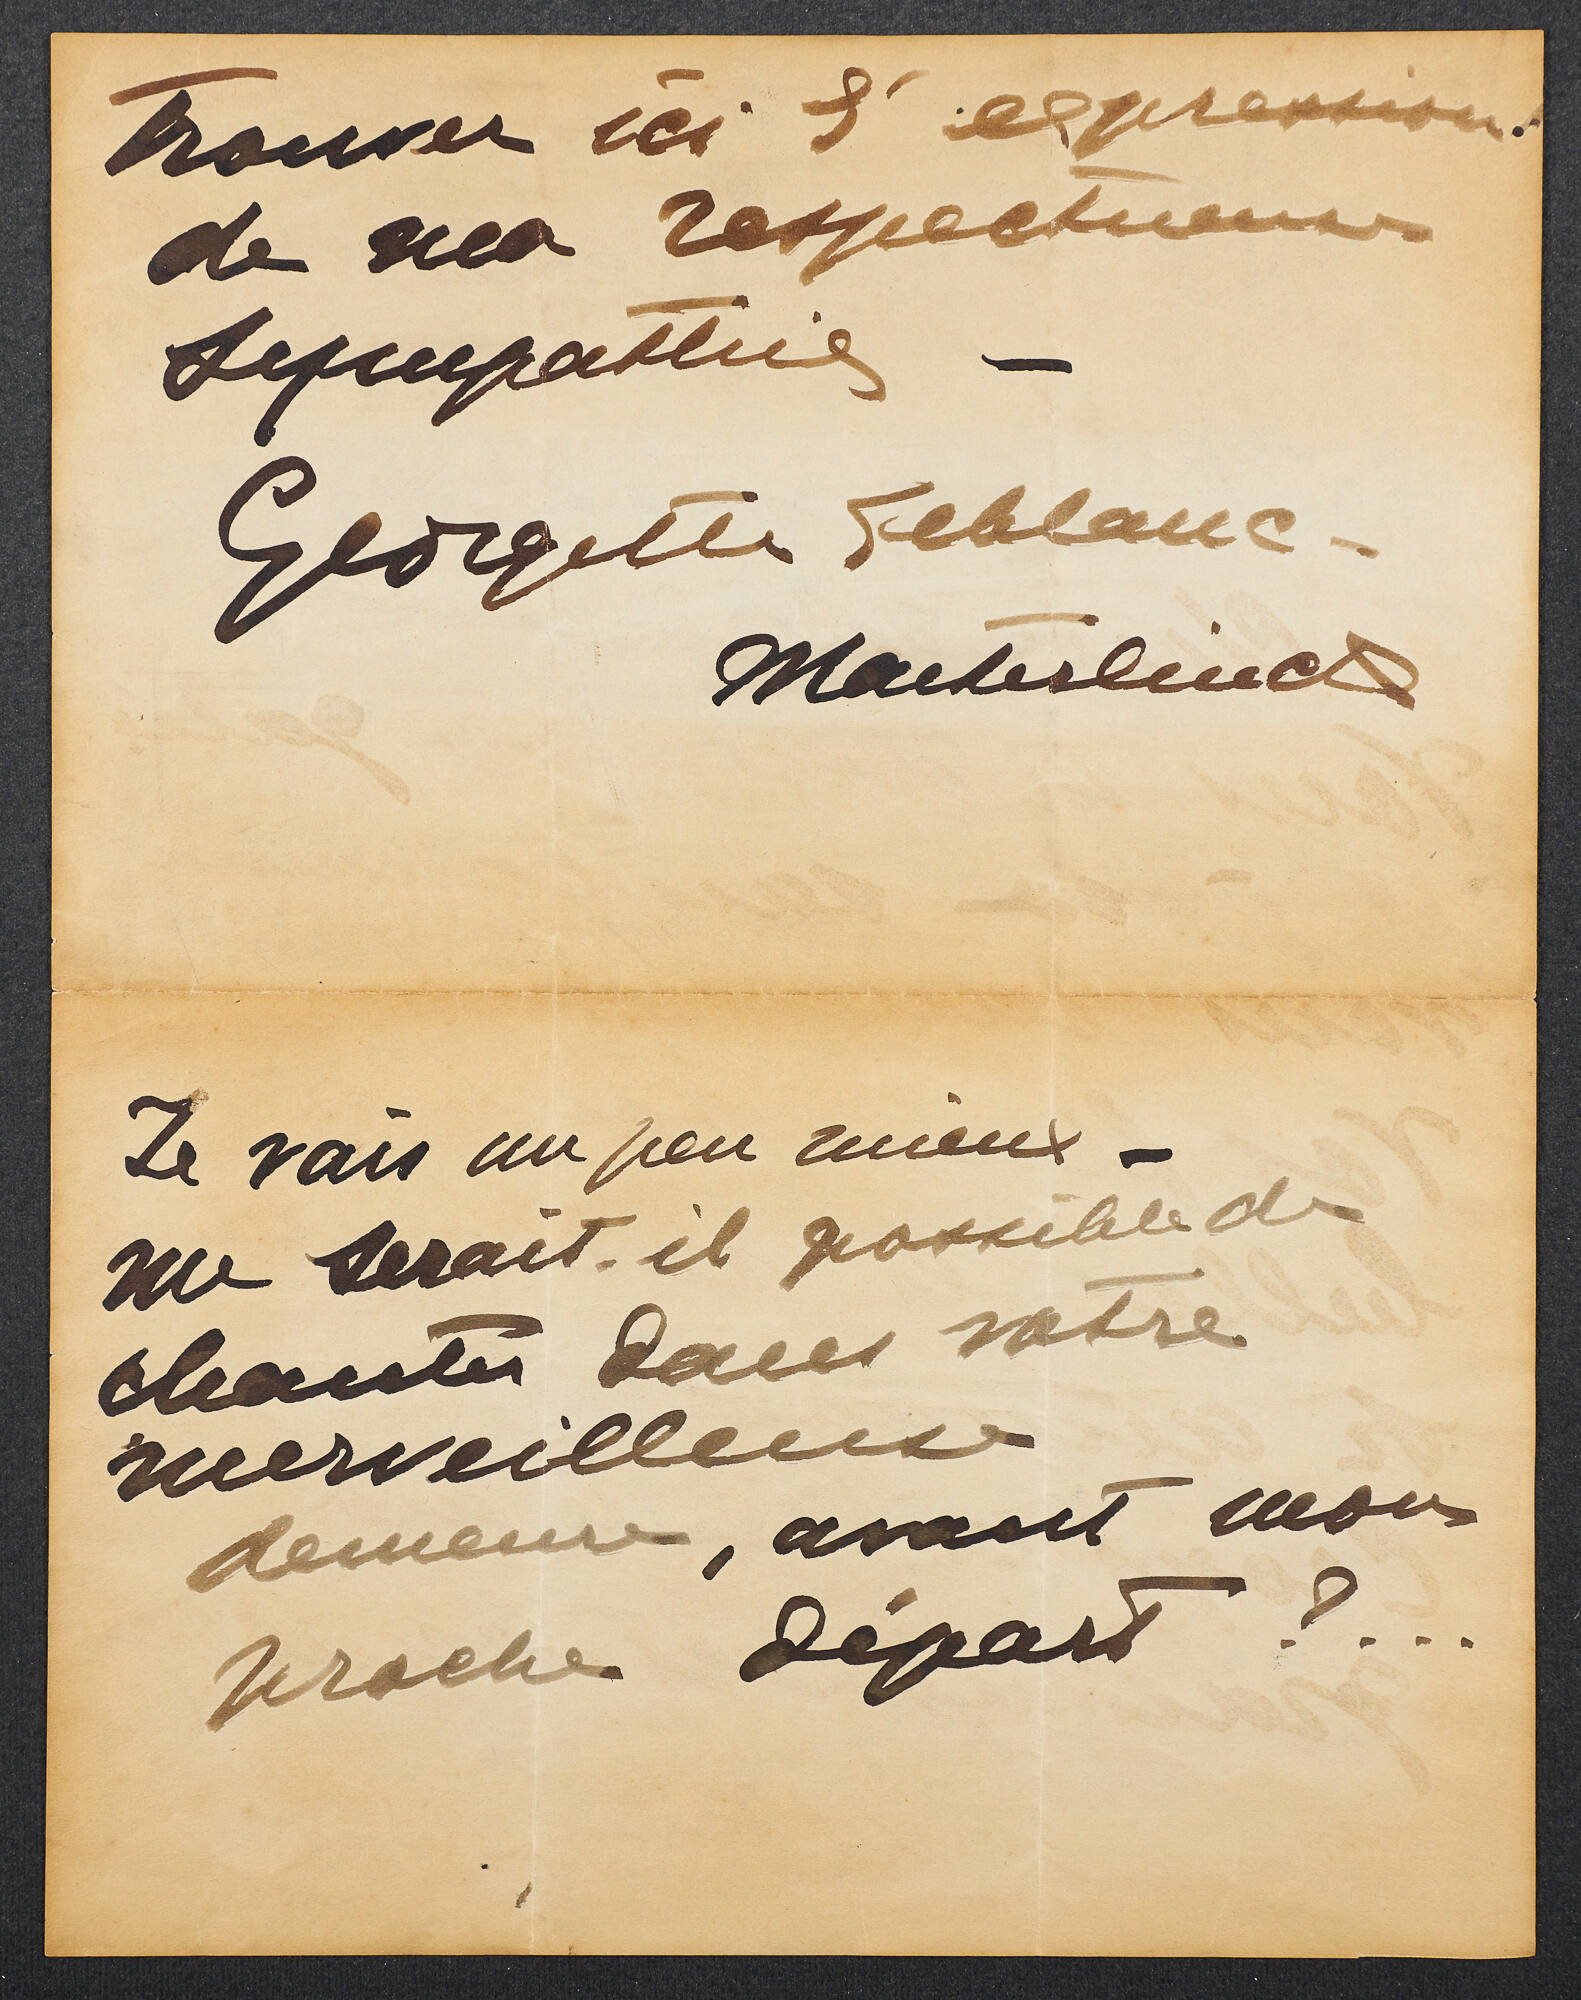 Trouver ici l'expression
de ma respectueuse
sympathie —
Georgette Leblanc -
Maeterlinck
Je vais un peu mieux -
me serait-il possible de
chanter dans votre
merveilleuse
demeure, avant mon
proche départ ?...